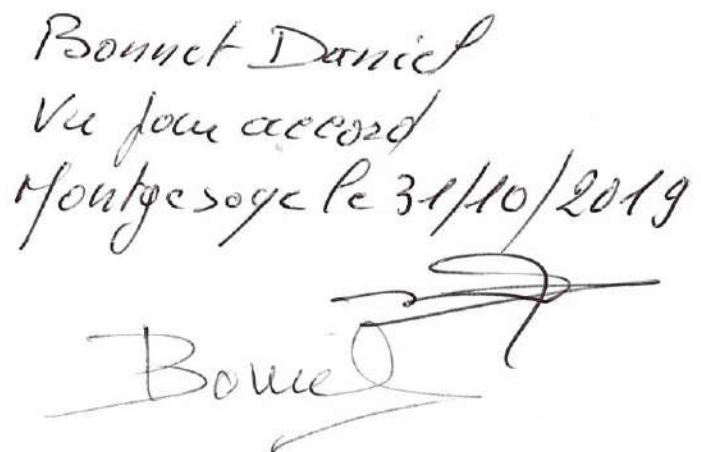 Bonnet Daniel
Vu pour accord
Montgesoye le 31/10/2019
Bonnet